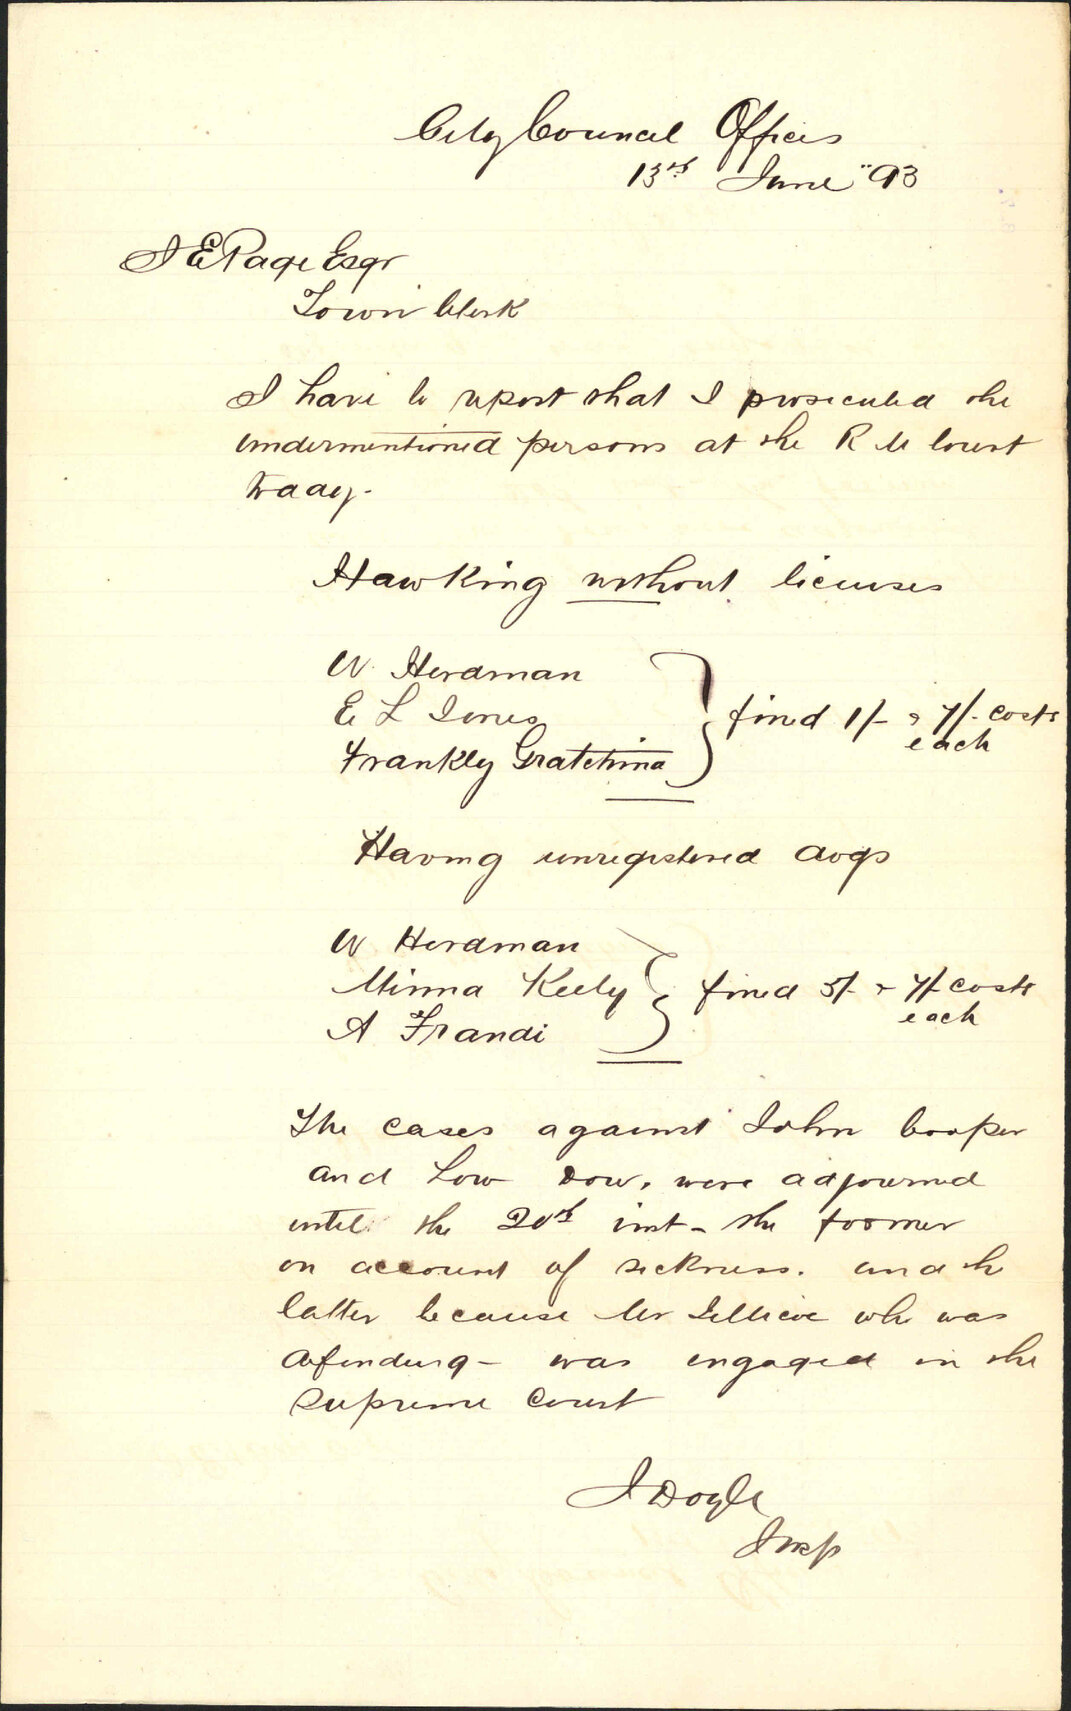 City Council Offices
13th June "93
J E Page Esqr
Town Clerk
I have to report that I prosecuted the
undermentioned persons at the R M Court
today -
Hawking without licenses
W. Herdman
E L Jones
Frankly Gratchina
fined 1/- & 7/- costs
each
Having unregistered dogs
W Herdman
Minna Keely
A Frandi
fined 5/- & 7/- costs
each
The cases against John Cooper
and Low Dow, were adjourned
until the 20th inst - the former
on account of sickness. and the
latter because Mr Jellicoe who was
defending - was engaged in the
Supreme Court
J Doyle
Insp